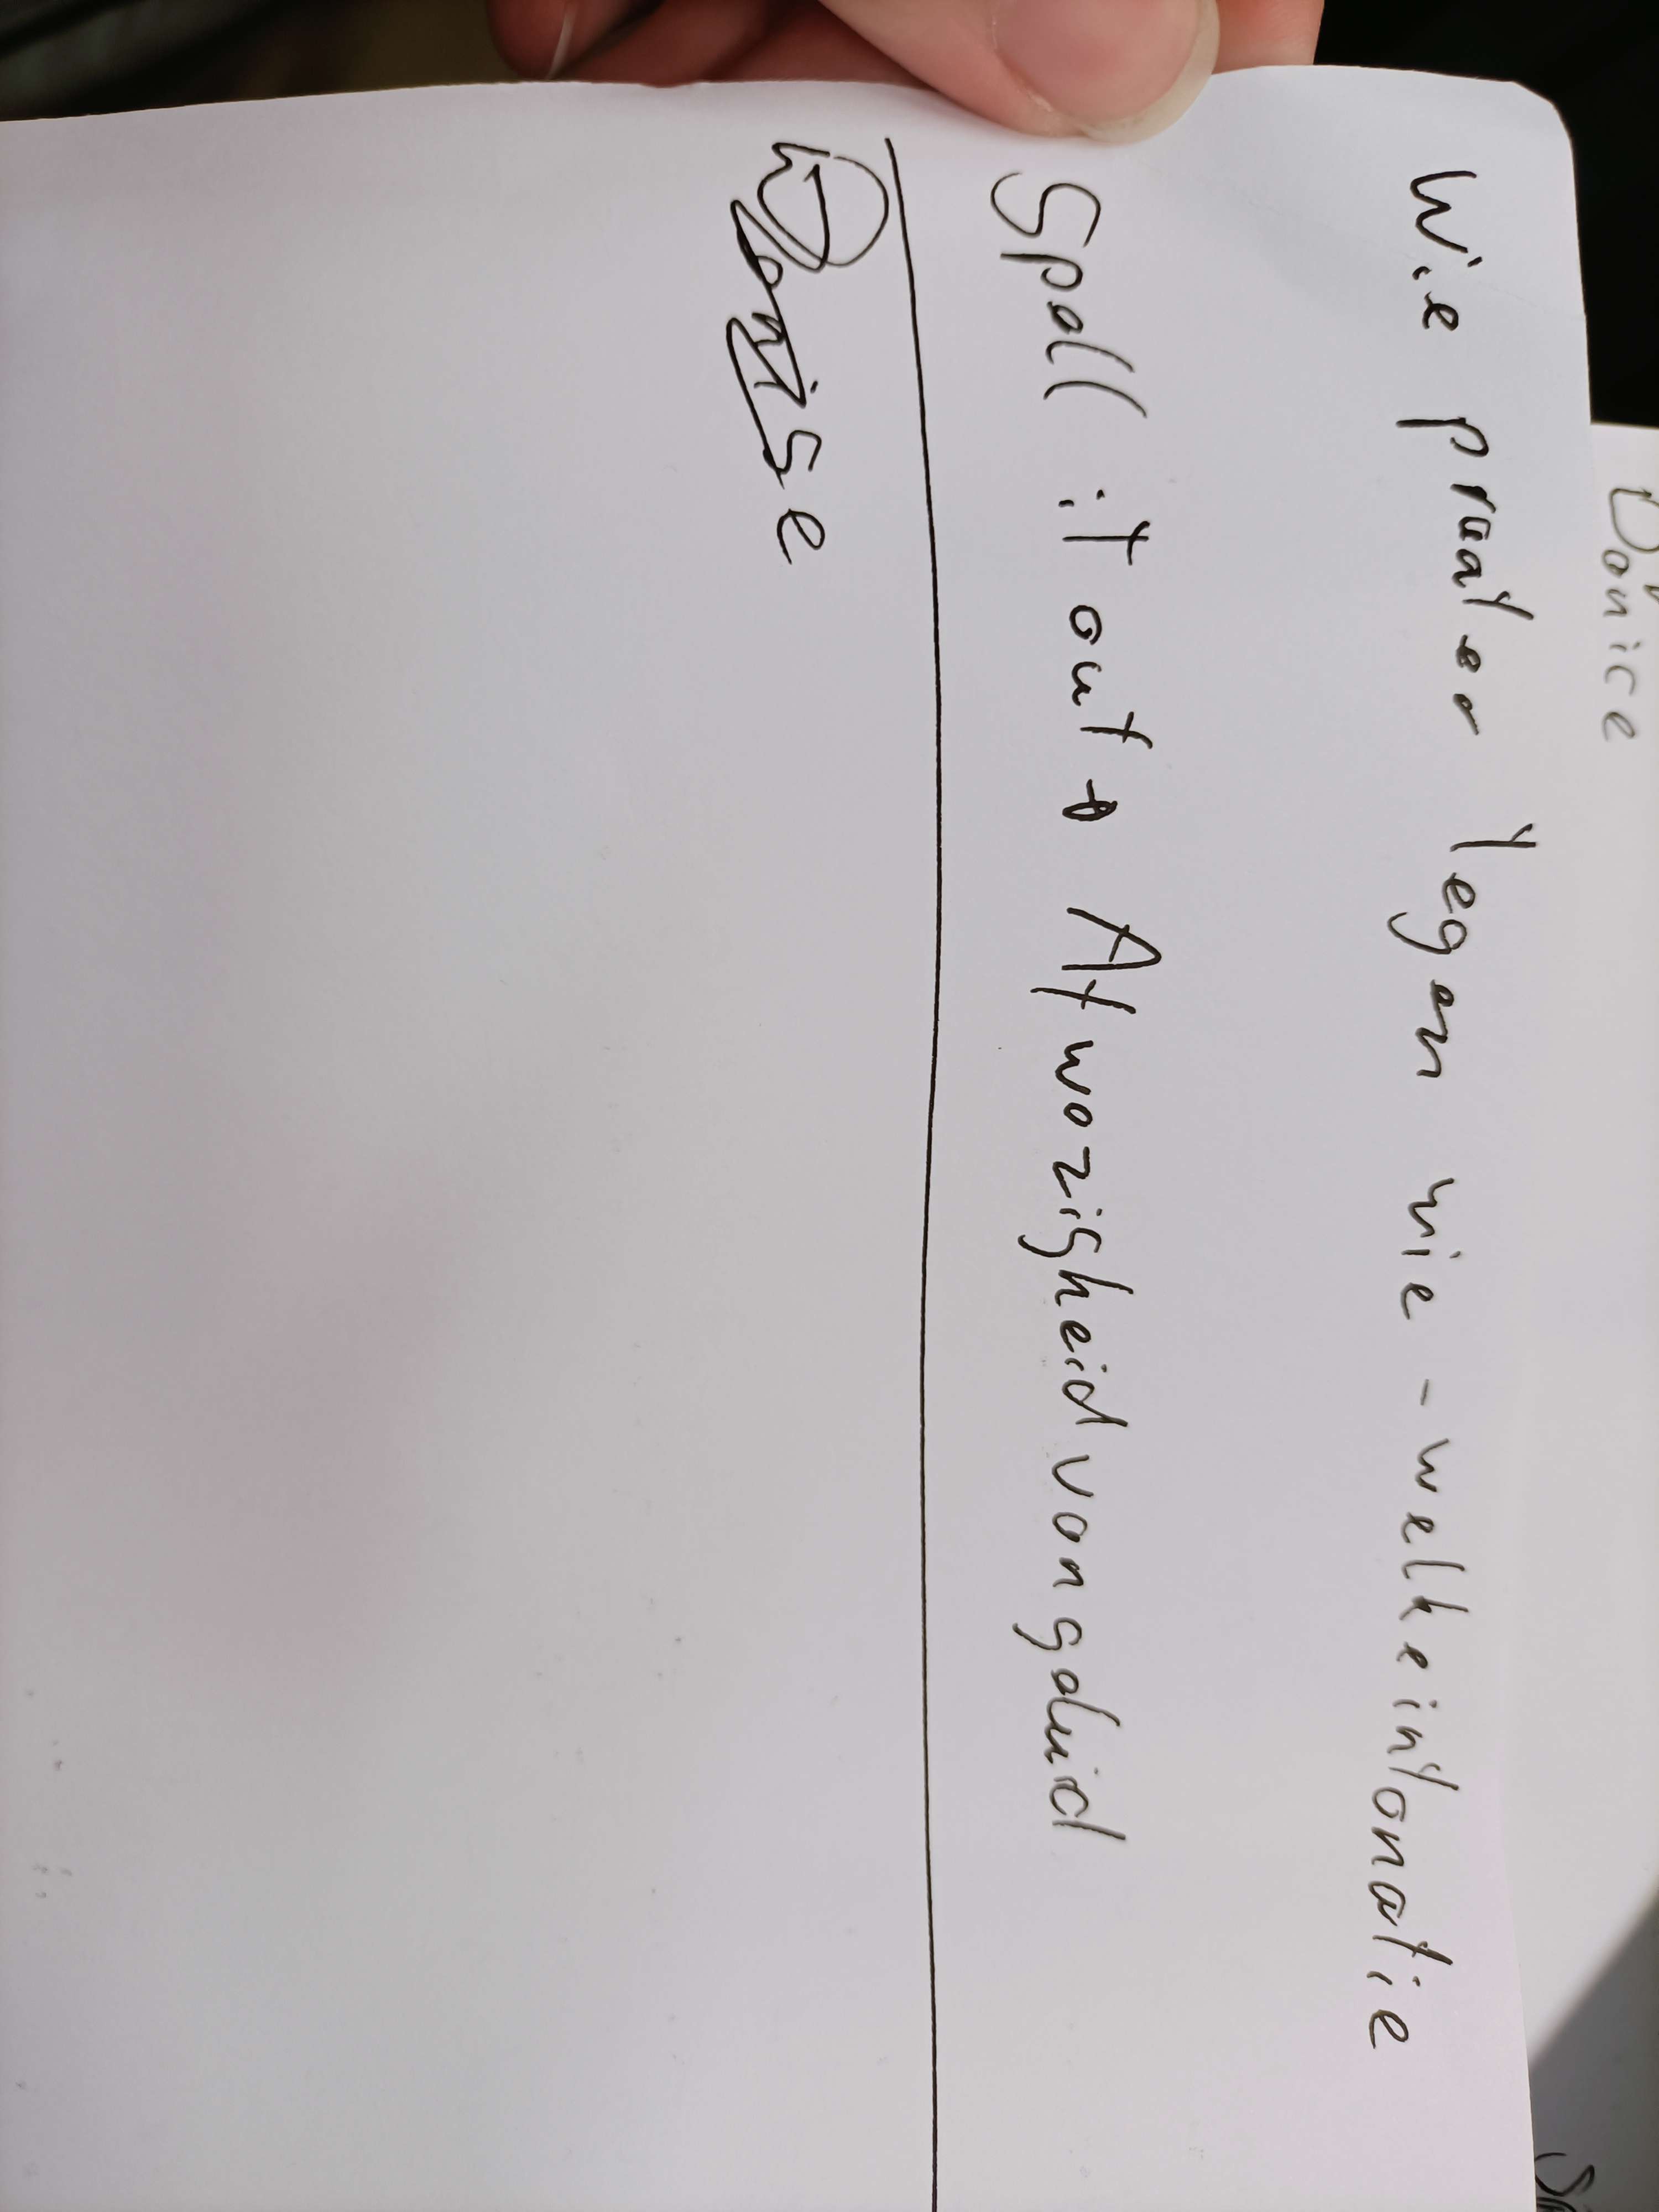 Denice
Wie praten tegen wie - welke intonatie
Spell it out → Afwezigheid van geluid
Denise